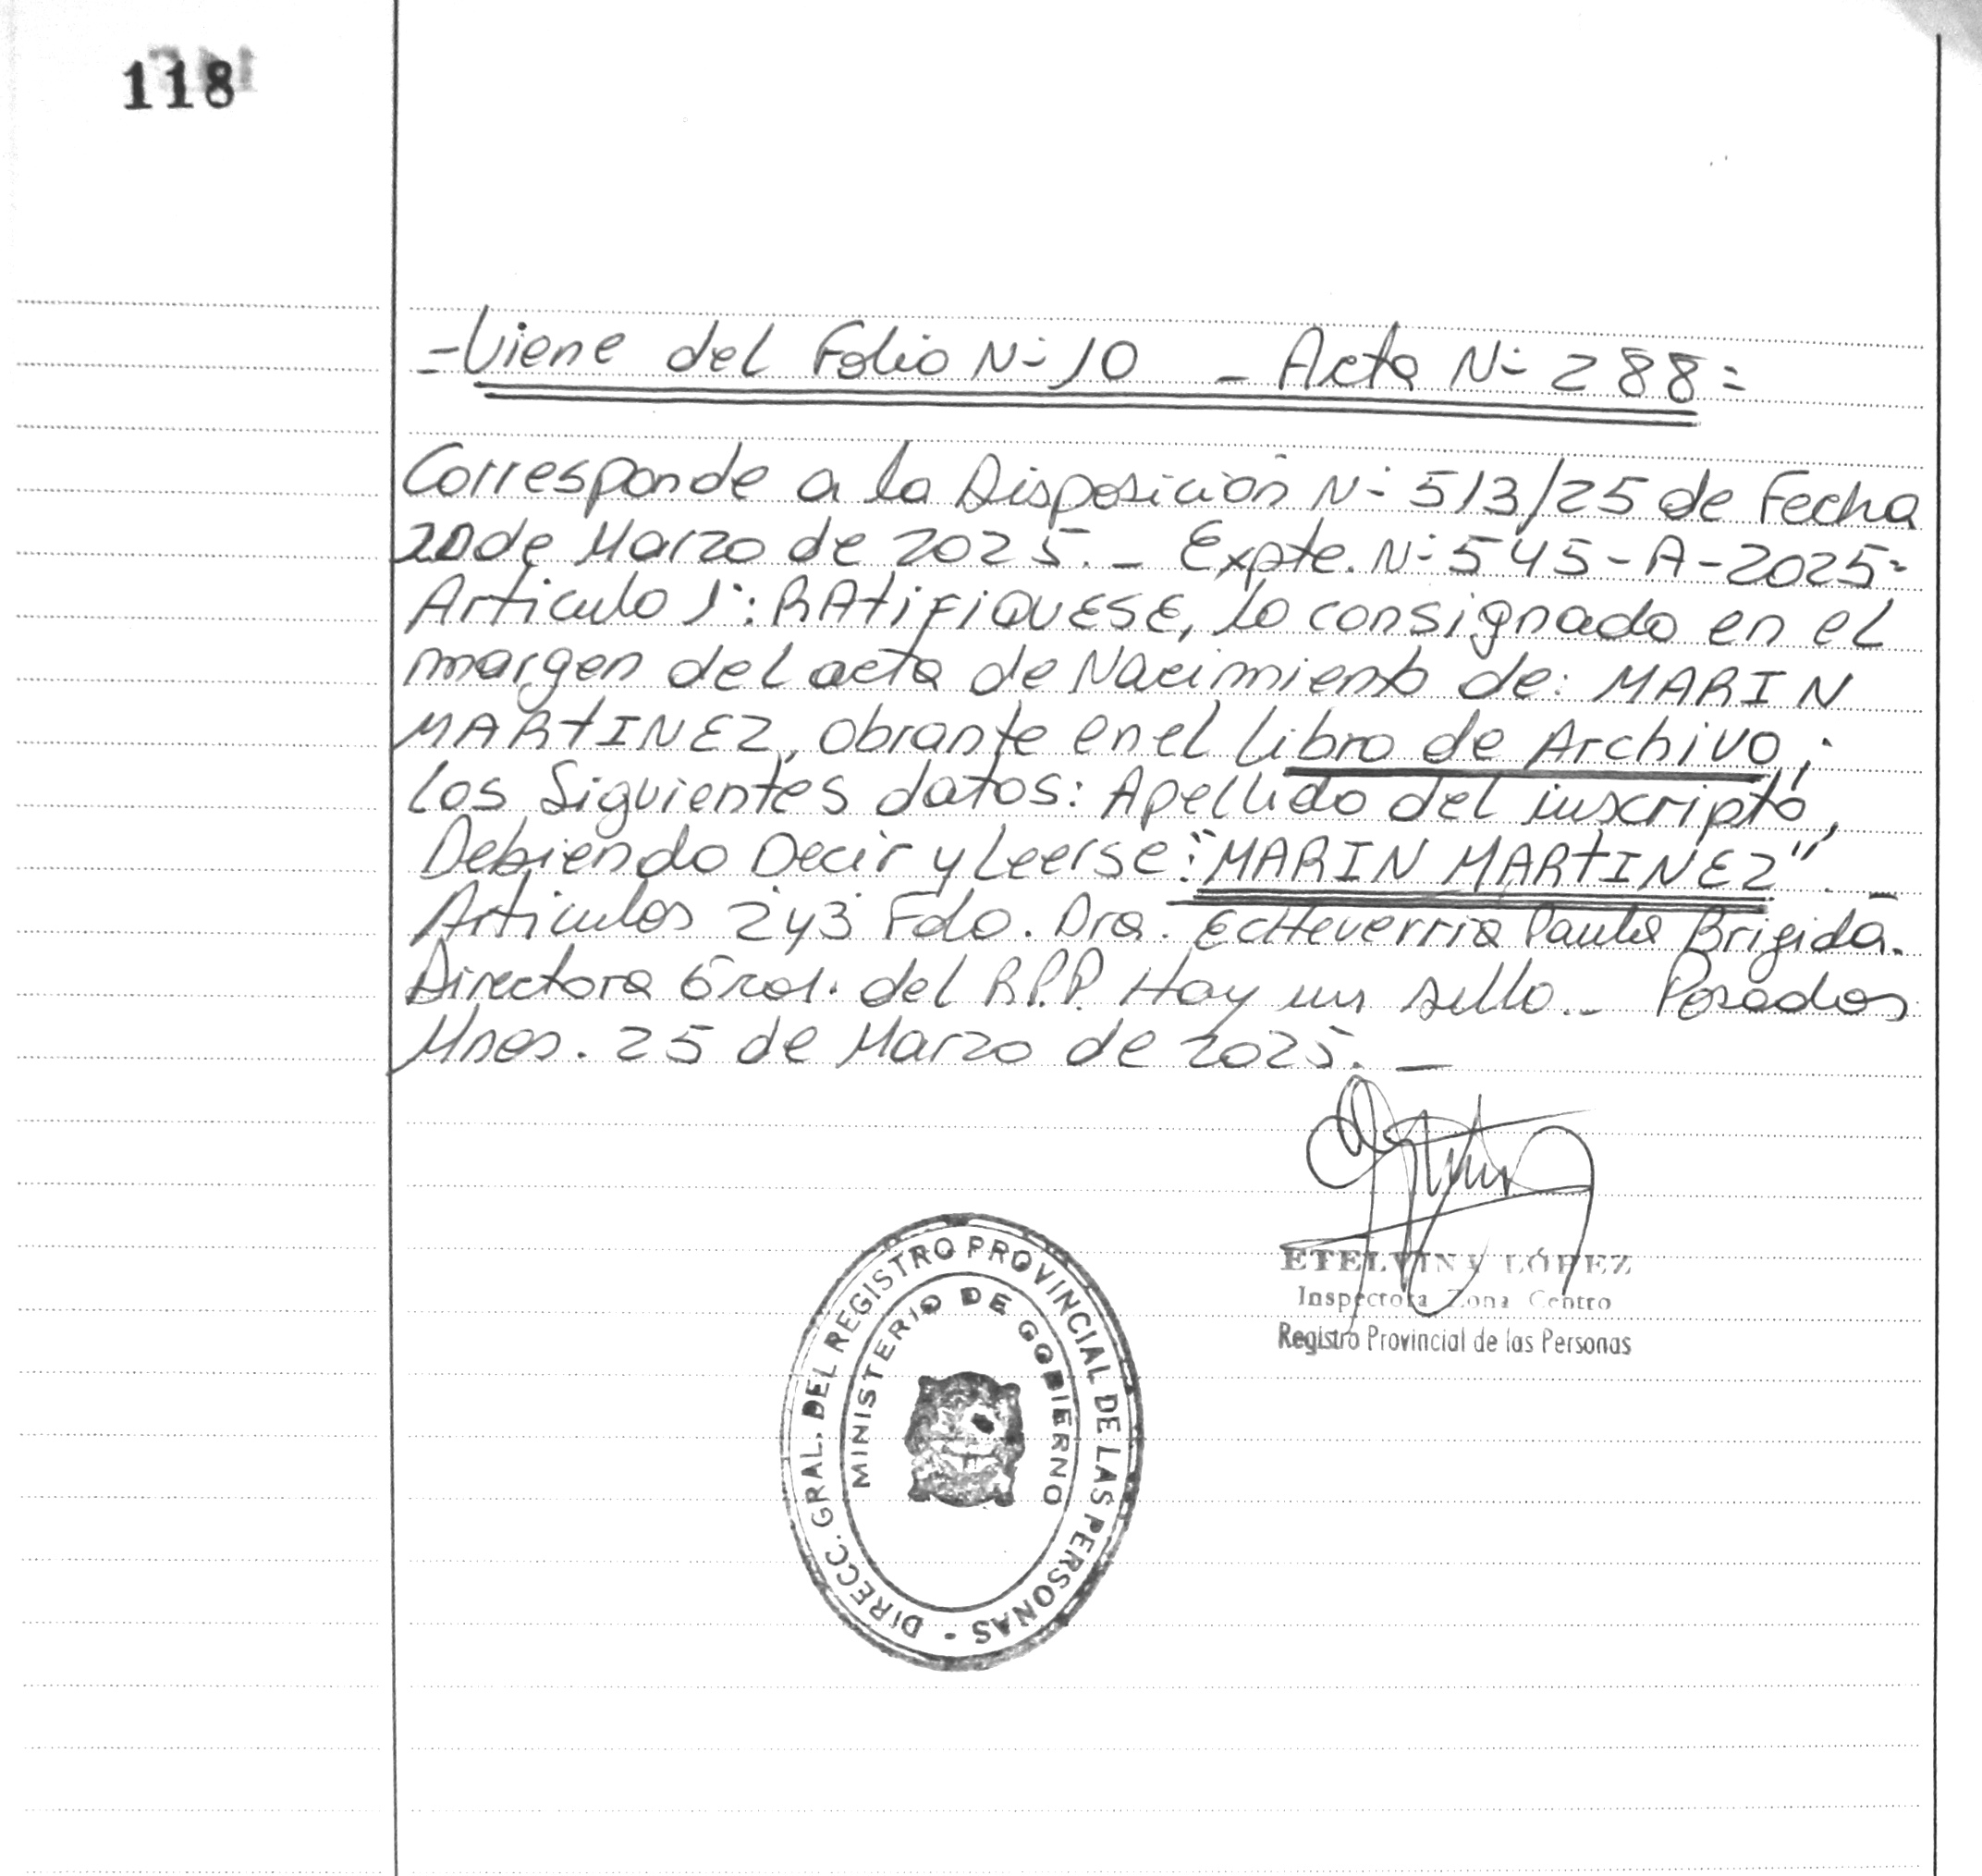 118
=Viene del Folio N- 10 - Acta N- 288=
Corresponde a la Disposición N- 513/25 de Fecha
20 de Marzo de 2025._ Expte. N- 545-A-2025-
Articulo 1°: RAtiFiQUESE, lo consignado en el
margen del acta de Nacimiento de: MARIN
MARtINEZ, obrante en el libro de Archivo;
los Siguientes datos: Apellido del inscripto,
Debiendo Decir y Leerse: "MARIN MARtINEZ". _
Articulos 2 y 3 Fdo. Dra. EcHeverria Paula Brigida.
Directora Gral. del R.P.P. Hay un sello._ Posadas
Mnes. 25 de Marzo de 2025. _
ETELVINA LÓPEZ
Inspectora Zona Centro
Registro Provincial de las Personas
DIRECC. GRAL. DEL REGISTRO PROVINCIAL DE LAS PERSONAS -
MINISTERIO DE GOBIERNO